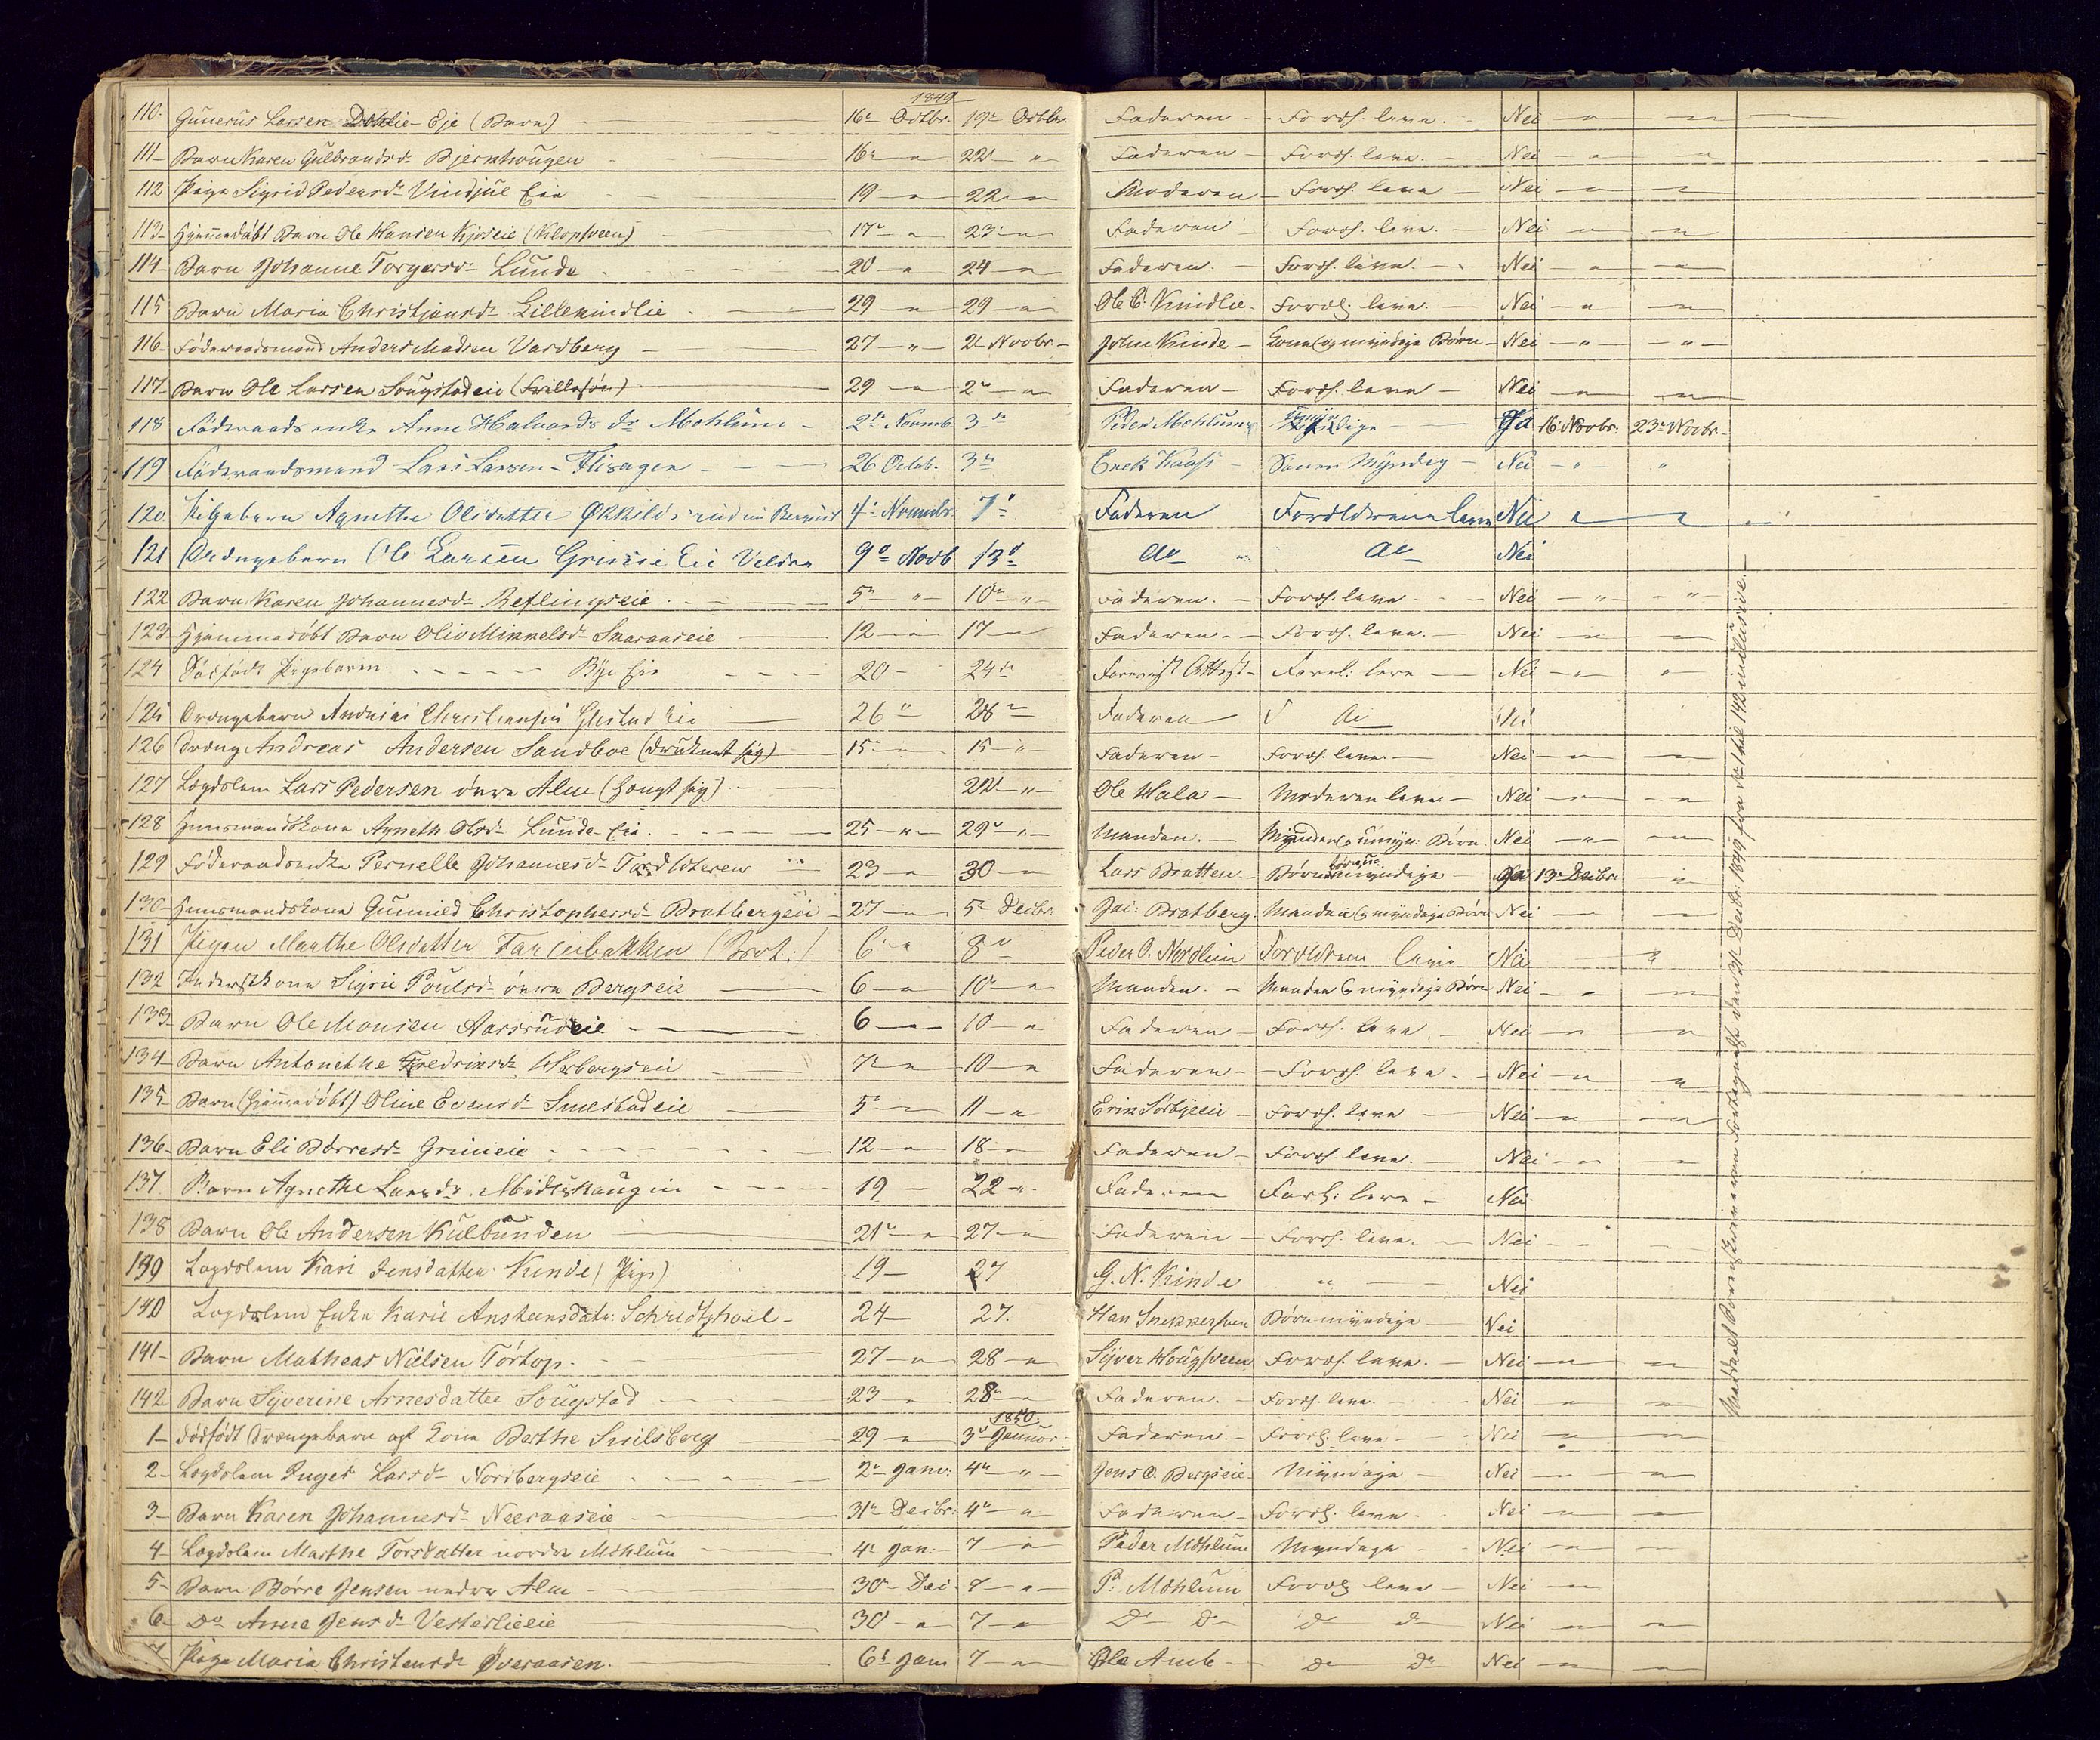 1849
110. Gunerius Larsen Dohlie-Eje (Barn) 16de Octbr. 19de Octbr. Faderen Foreld. leve. Nei
111 Barn Karen Gulbrandsd. Bjernhougen 16de 22 Faderen Foreld. leve. Nei
112 Pige Sigrid Pedersd. Vindjue Eie 19 22 Moderen Foreld. leve Nei
113 Hjemmedöbt Barn Ole Hansen Kjoseie (Klopsveen) 17 23 Faderen Foreld. leve. Nei
114 Barn Johanne Torgersd. Lunde 20 24 Faderen. Foreld. leve. Nei
115 Barn Maria Christjansd. Lillekindlie 29 29 Ole C. Kindlie. Foreld. leve. Nei
116 Föderaadsmand Anders Madsen Vardberg 27 2 Novbr. John Kinde Kone og myndige Börn Nei
117 Barn Ole Larsen Sougstadeie (Frillesön) 29 2 Faderen Foreld. leve Nei
118 Föderaads enke Anne Halvords dr Mæhlum 2de Novemb. 3de Peder Mæhlum Ja 16 Novbr. 23 Novbr.
119 Föderaadsmand Lars Larsen Flisagen 26 Octob. 3de Enek Kaass Sönn Myndig Nei
120. Pigebarn Agnethe Olsdatter Økkelsrud 4 Novembr. 7 Faderen Forældrene leve Nei
121 Drengebarn Ole Larsen Grimsie Eie Veldre 9 Novb 13 do do Nei
122 Barn Karen Johannesd. Reflingseie 5 10 Faderen. Foreld. leve Nei
123 Hjemmedöbt Barn Oliv Mikkelsd. Snaraaseie 12 17 Faderen. Foreld. leve. Nei
124 Dödfödt Pigebarn Bye Eie 20 24de Forevist Attest Forel. leve Nei
125 Drengebarn Andreas Christiansen Gjestad Eie 26 28 Faderen do Nei
126 Dreng Andreas Andersen Sandboe (druknet sig) 15 15 Faderen Foreld. leve Nei
127 Lægdslem Lars Pedersen övre Alm (hængt sig) 22 Ole Hala Moderen leve Nei
128 Huusmandskone Agneth Olsd. Lunde Eie. 25 29 Manden. Manden og umyn: Börn Nei
129 Föderaadsenke Pernelle Johannesd. 23 30 Lars Bratten Börn myndige Ja 13 Decbr.
130 Huusmandskone Gunnild Christophersd. Bratbergeie 27 5 Decbr. Joh: Bratberg. Manden og myndige Börn Nei
131 Pigen Marthe Olsdatter Farseibakken 6 8 Peder O. Nordlien Foreldrene leve Nei
132 Inderstkone Sigrie Poulsd. övre Bergseie 6 10 Manden. Manden og myndige Börn Nei
133 Barn Ole Monsen Aarsrudeie 6 10 Faderen Foreld. leve. Nei
134 Barn Antonethe Fredriksd. Wesbergseie 7 10 Faderen Foreld. leve. Nei
135 Barn (hjemmedöbt) Oline Evensd. Smestadeie 5 11 Erik Sörbyeeie Foreld. leve Nei
136 Barn Eli Börresd. Grimeie 12 18 Faderen Foreld. leve. Nei
137 Barn Agnethe Larsdr. Mödtshaugen 19 22 Faderen Forl: leve Nei
138 Barn Ole Andersen Kulbunden 21 27 Faderen Foreld. leve. Nei
139 Lægdslem Kari Jensdatter Kinde (Pige) 19 27 G. N. Kinde Nei
140 Lægdslem Enke Karie Anstensdatr. 24 27. Han Snekkersveen Börn myndige Nei
141 Barn Matheas Nielsen Törtop. 27 28 Syver Hougsveen Foreld. leve. Nei
142 Barn Syverine Arnesdatter Sougstad 23 28 Faderen. Foreld. leve. Nei
1850.
1 Dödfödt Drengebarn af Kone Berthe Snilsberg 29 3 Januar Faderen. Foreld. leve Nei
2 Lægdslem Inger Larsd. Norsbergseie 2 Janu: 4 Jens O. Bergseie Myndige Nei
3 Barn Karen Johannesd. Neeraaseie 31 Decbr. 4 Faderen Foreld. leve Nei
4 Lægdslem Marthe Torsdatter nordre Mæhlum 4 Jan: 7 Peder Mæhlum Myndige Nei
5 Barn Börre Jensen nedre Alm 30 Dec. 7 P. Mæhlum Foreld. leve Nei
6 Do Anne Jensd. Vesterlieeie 30 7 Do Do Do Do Nei
7 Pige Maria Christensd. Överaasen. 6 Jan 7 Ole Amb Do Do Nei